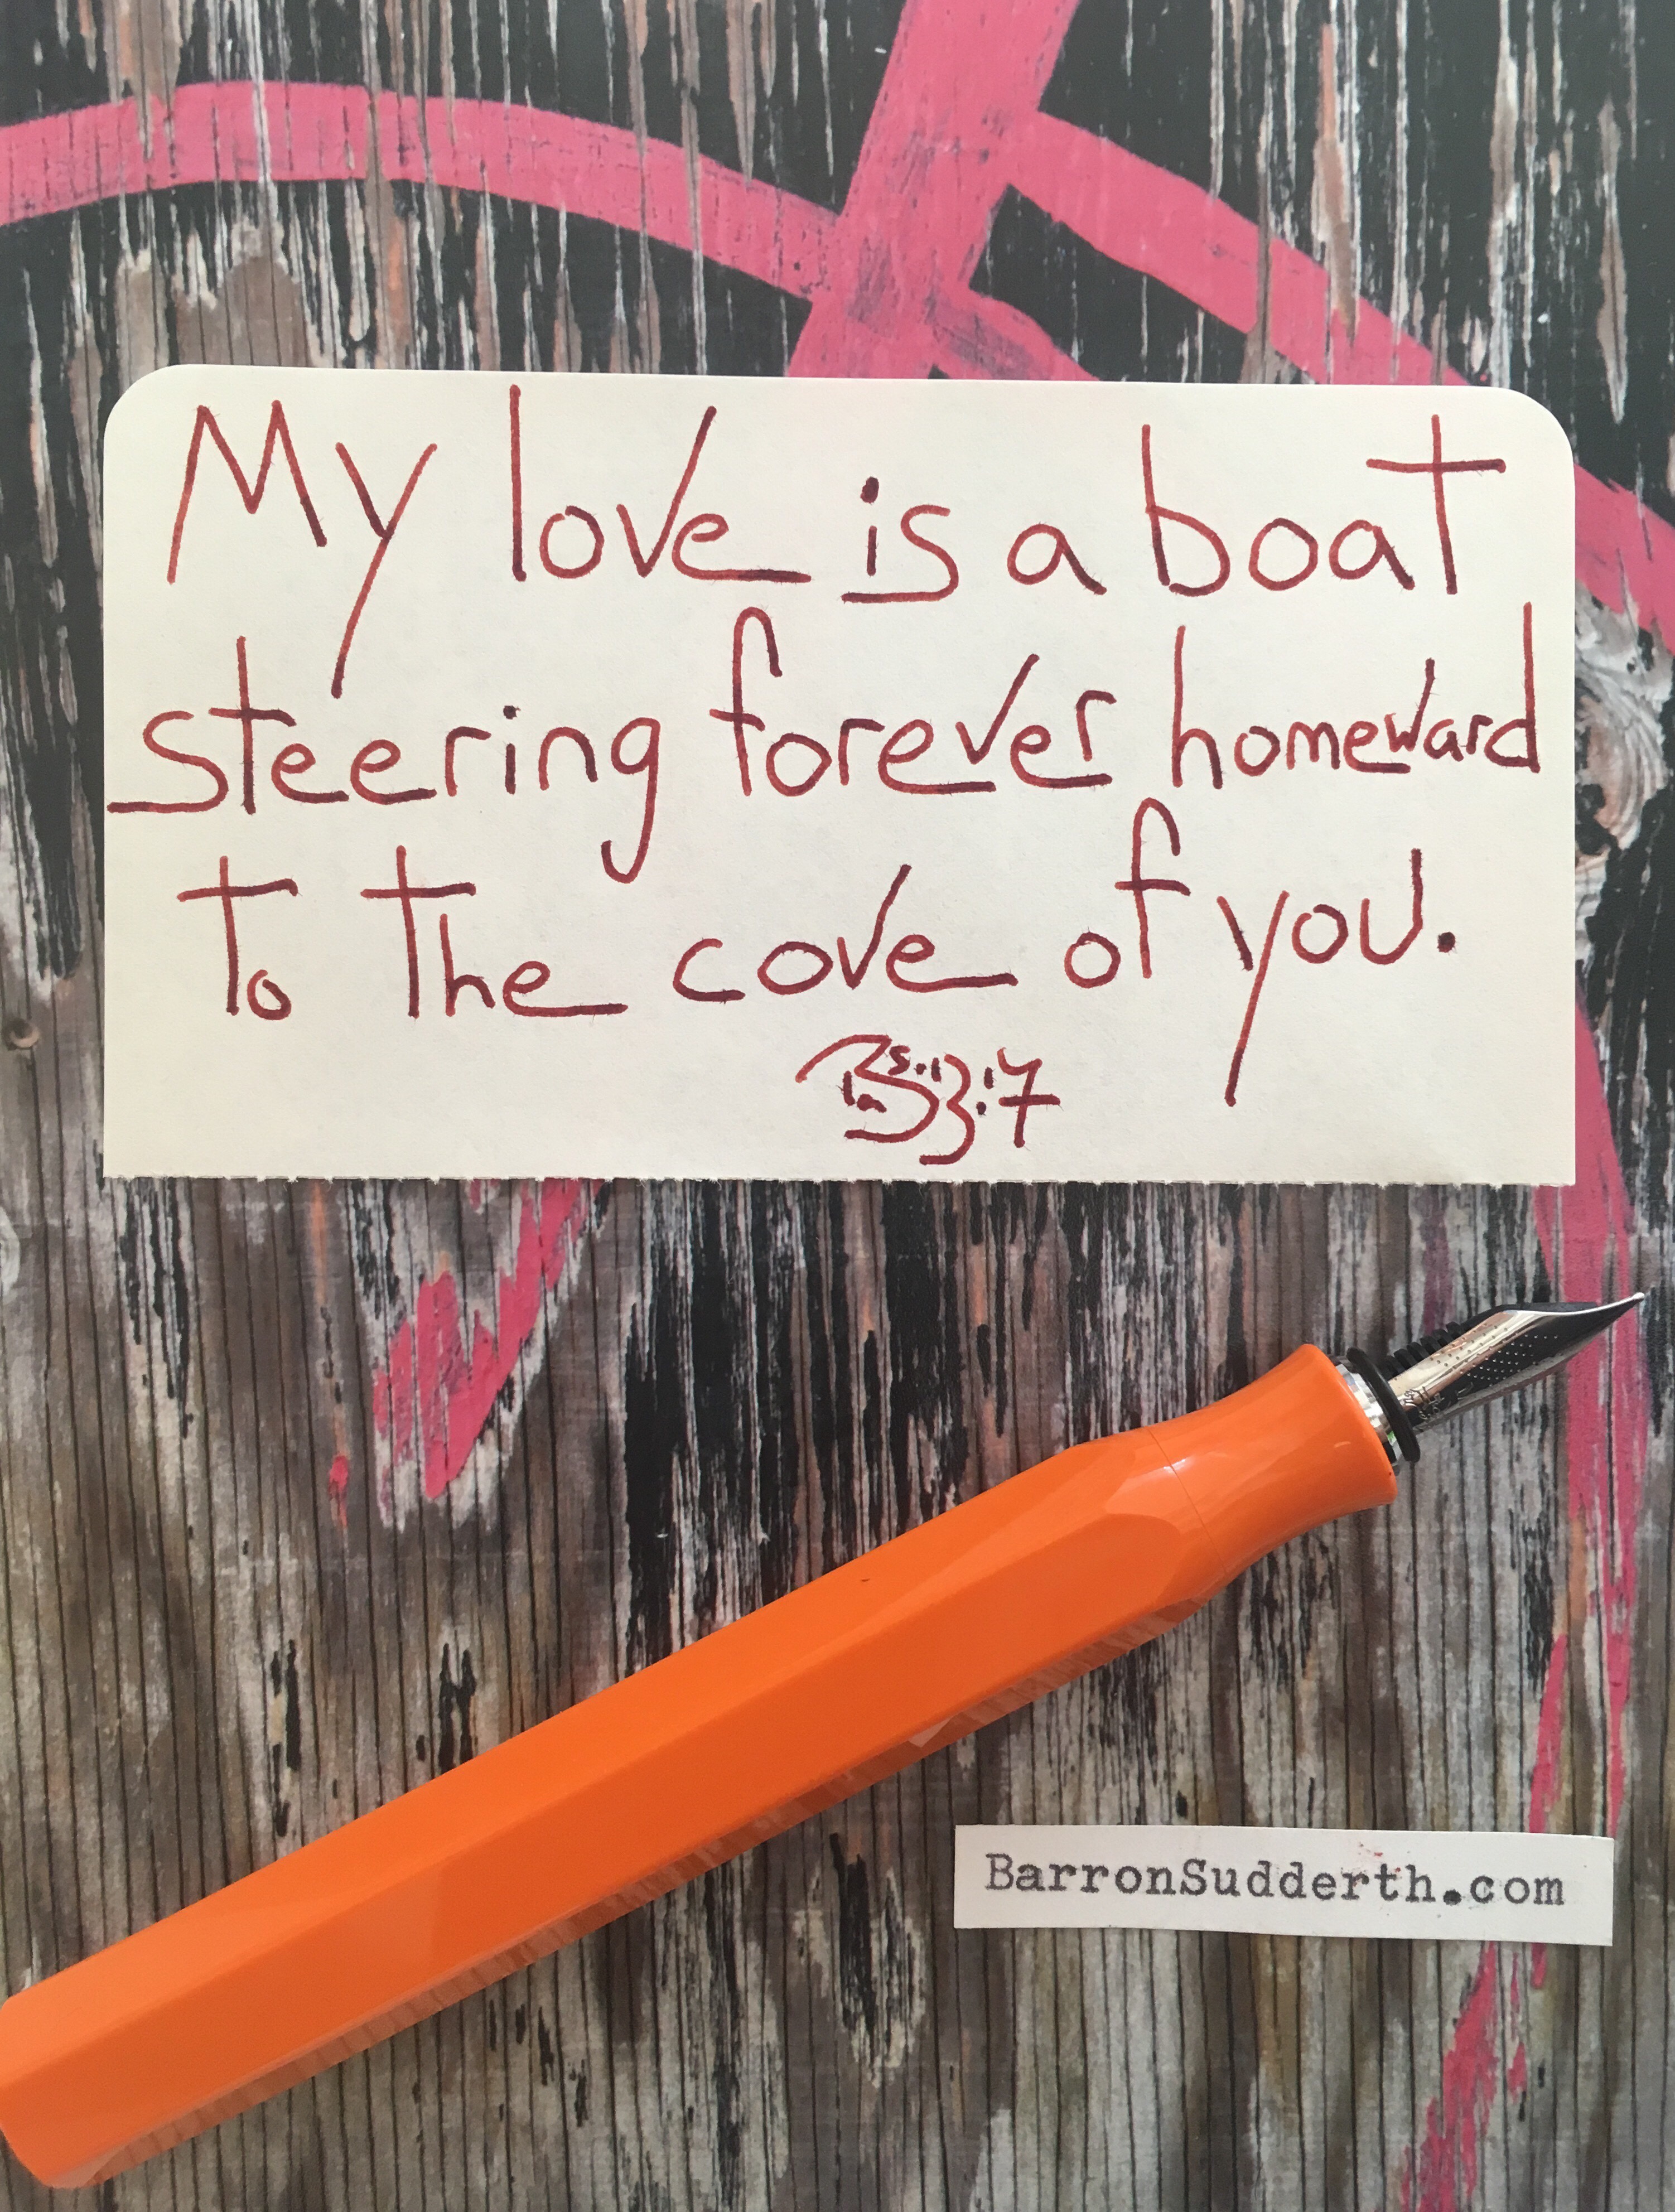 My love is a boat
steering forever homeward
to the cove of you.
BarronSudderth.com